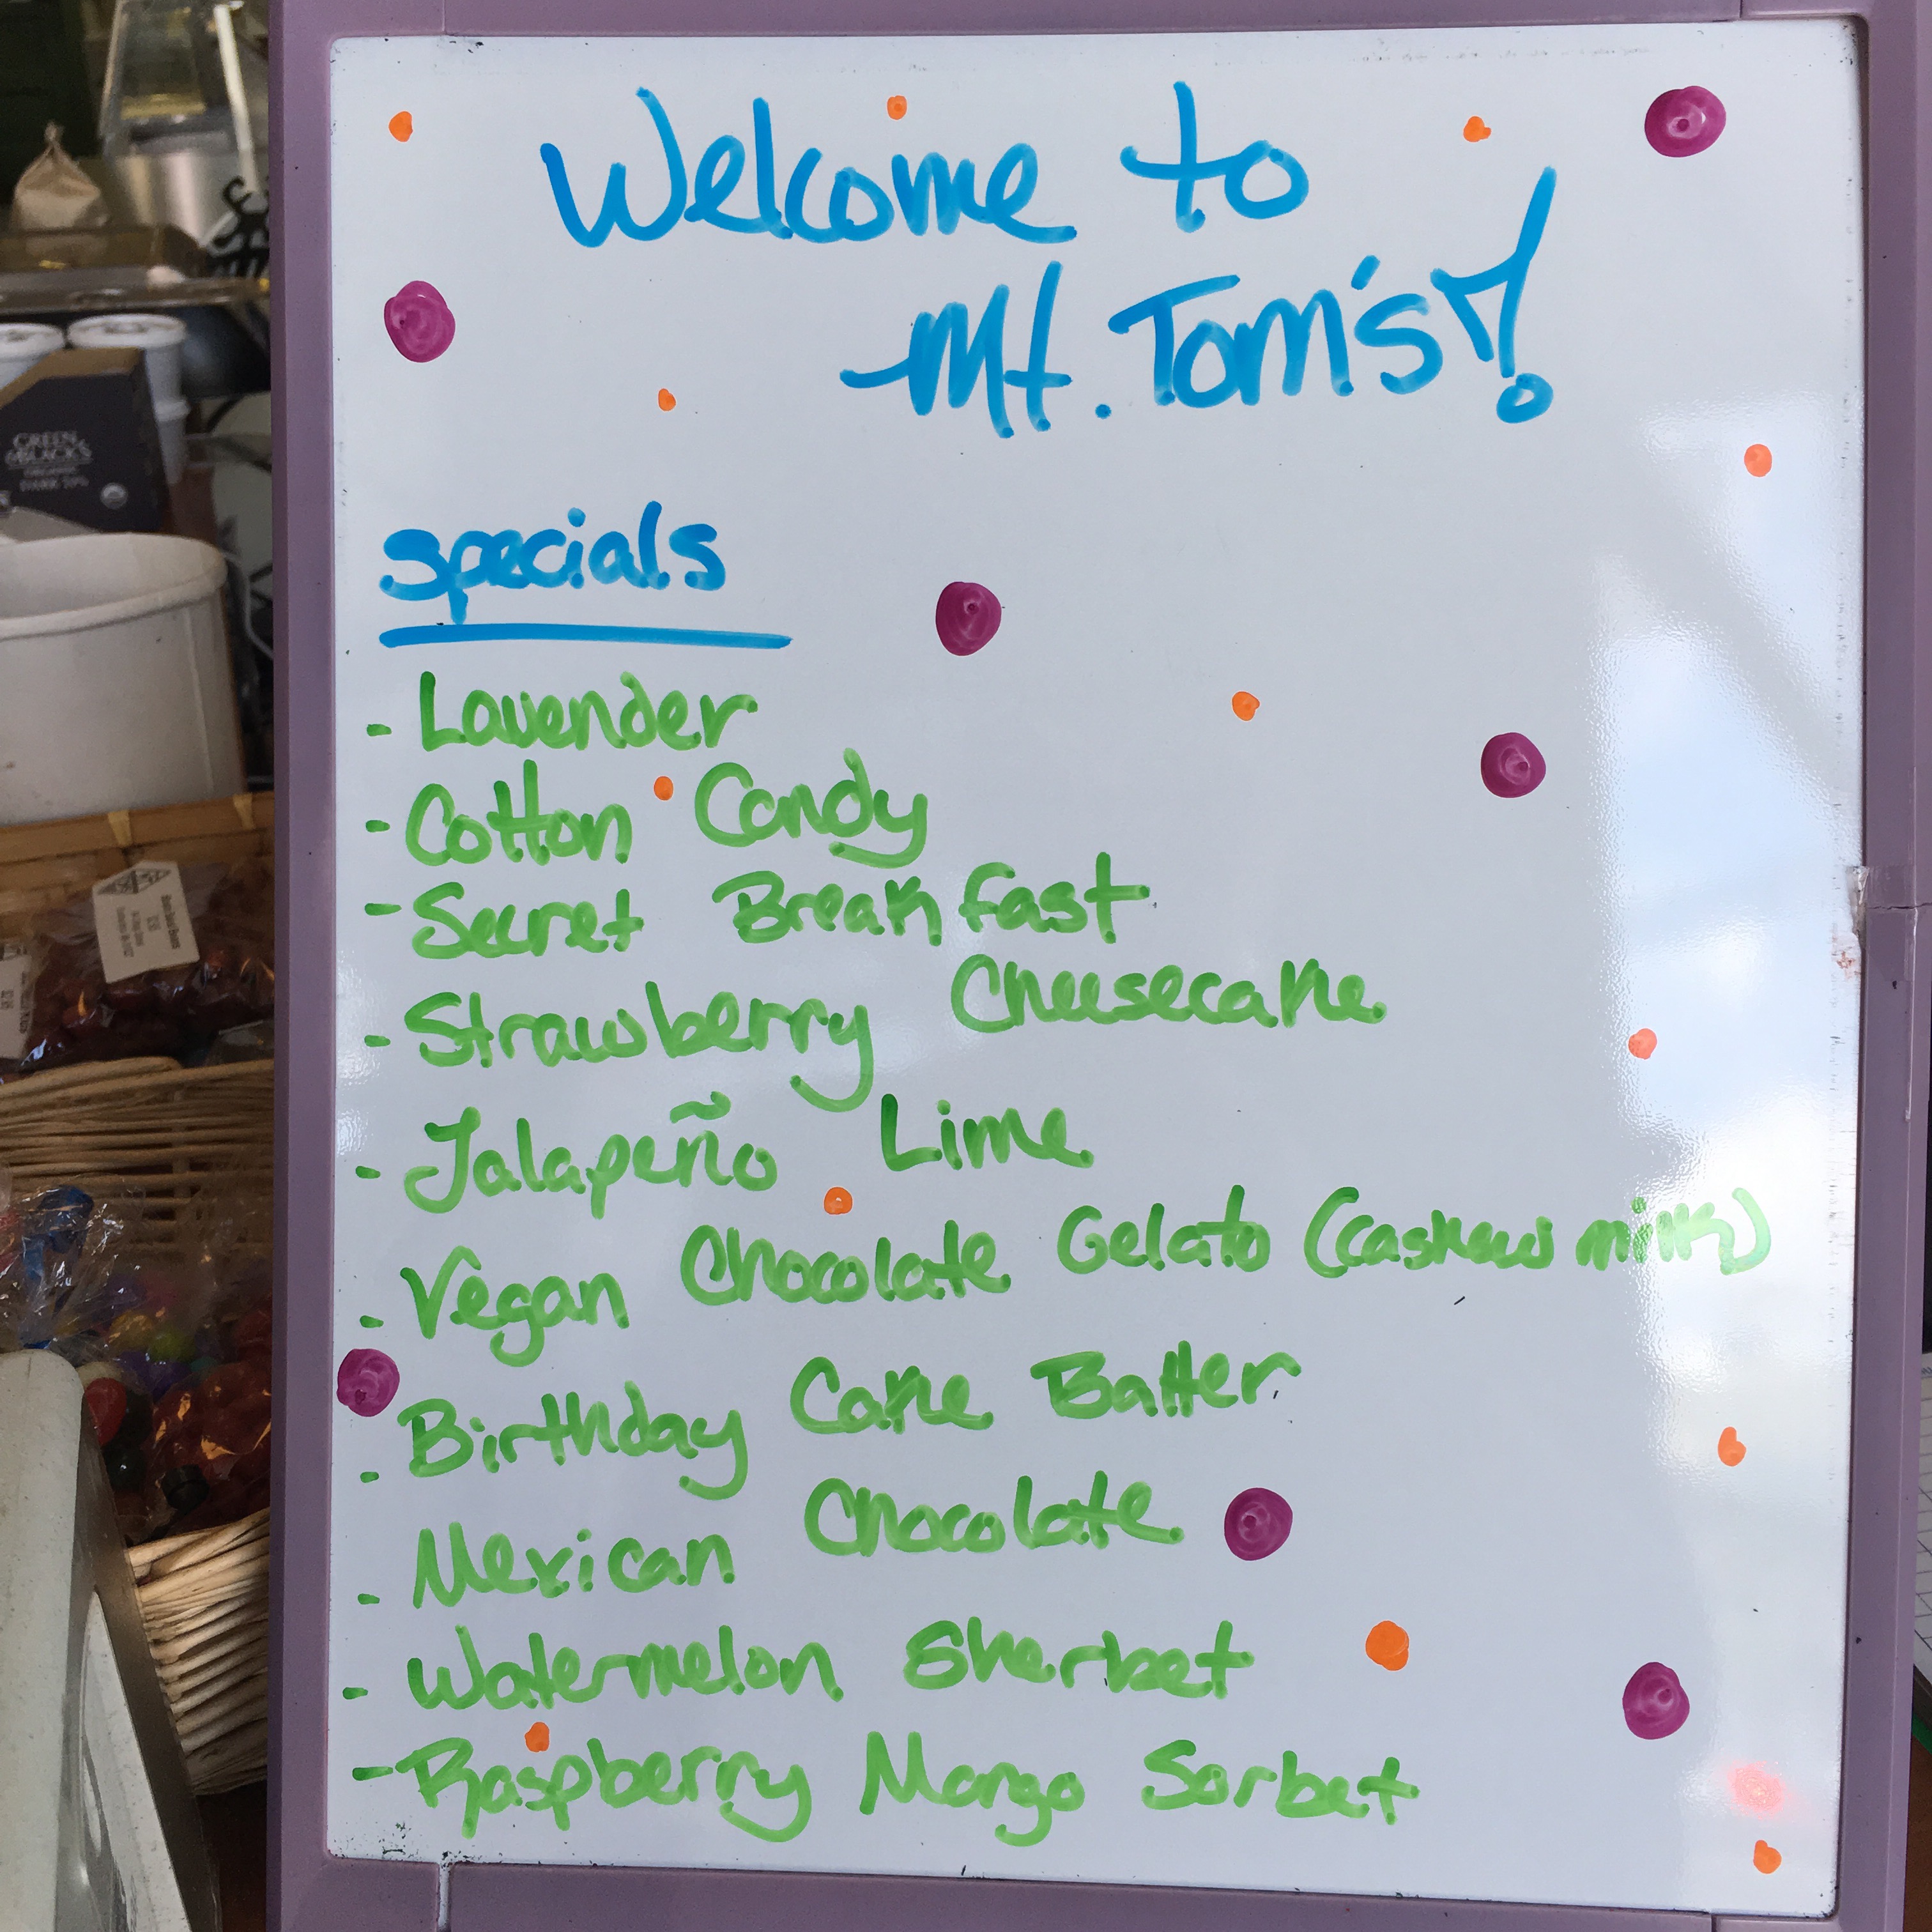 Welcome to
Mt. Tom's!
specials
- Lavender
- Cotton Candy
- Secret Breakfast
- Strawberry Cheesecake
- Jalapeño Lime
- Vegan Chocolate Gelato (cashew milk)
- Birthday Cake Batter
- Mexican Chocolate
- Watermelon Sherbet
- Raspberry Mango Sorbet
GREEN
&BLACK'S
ORGANIC